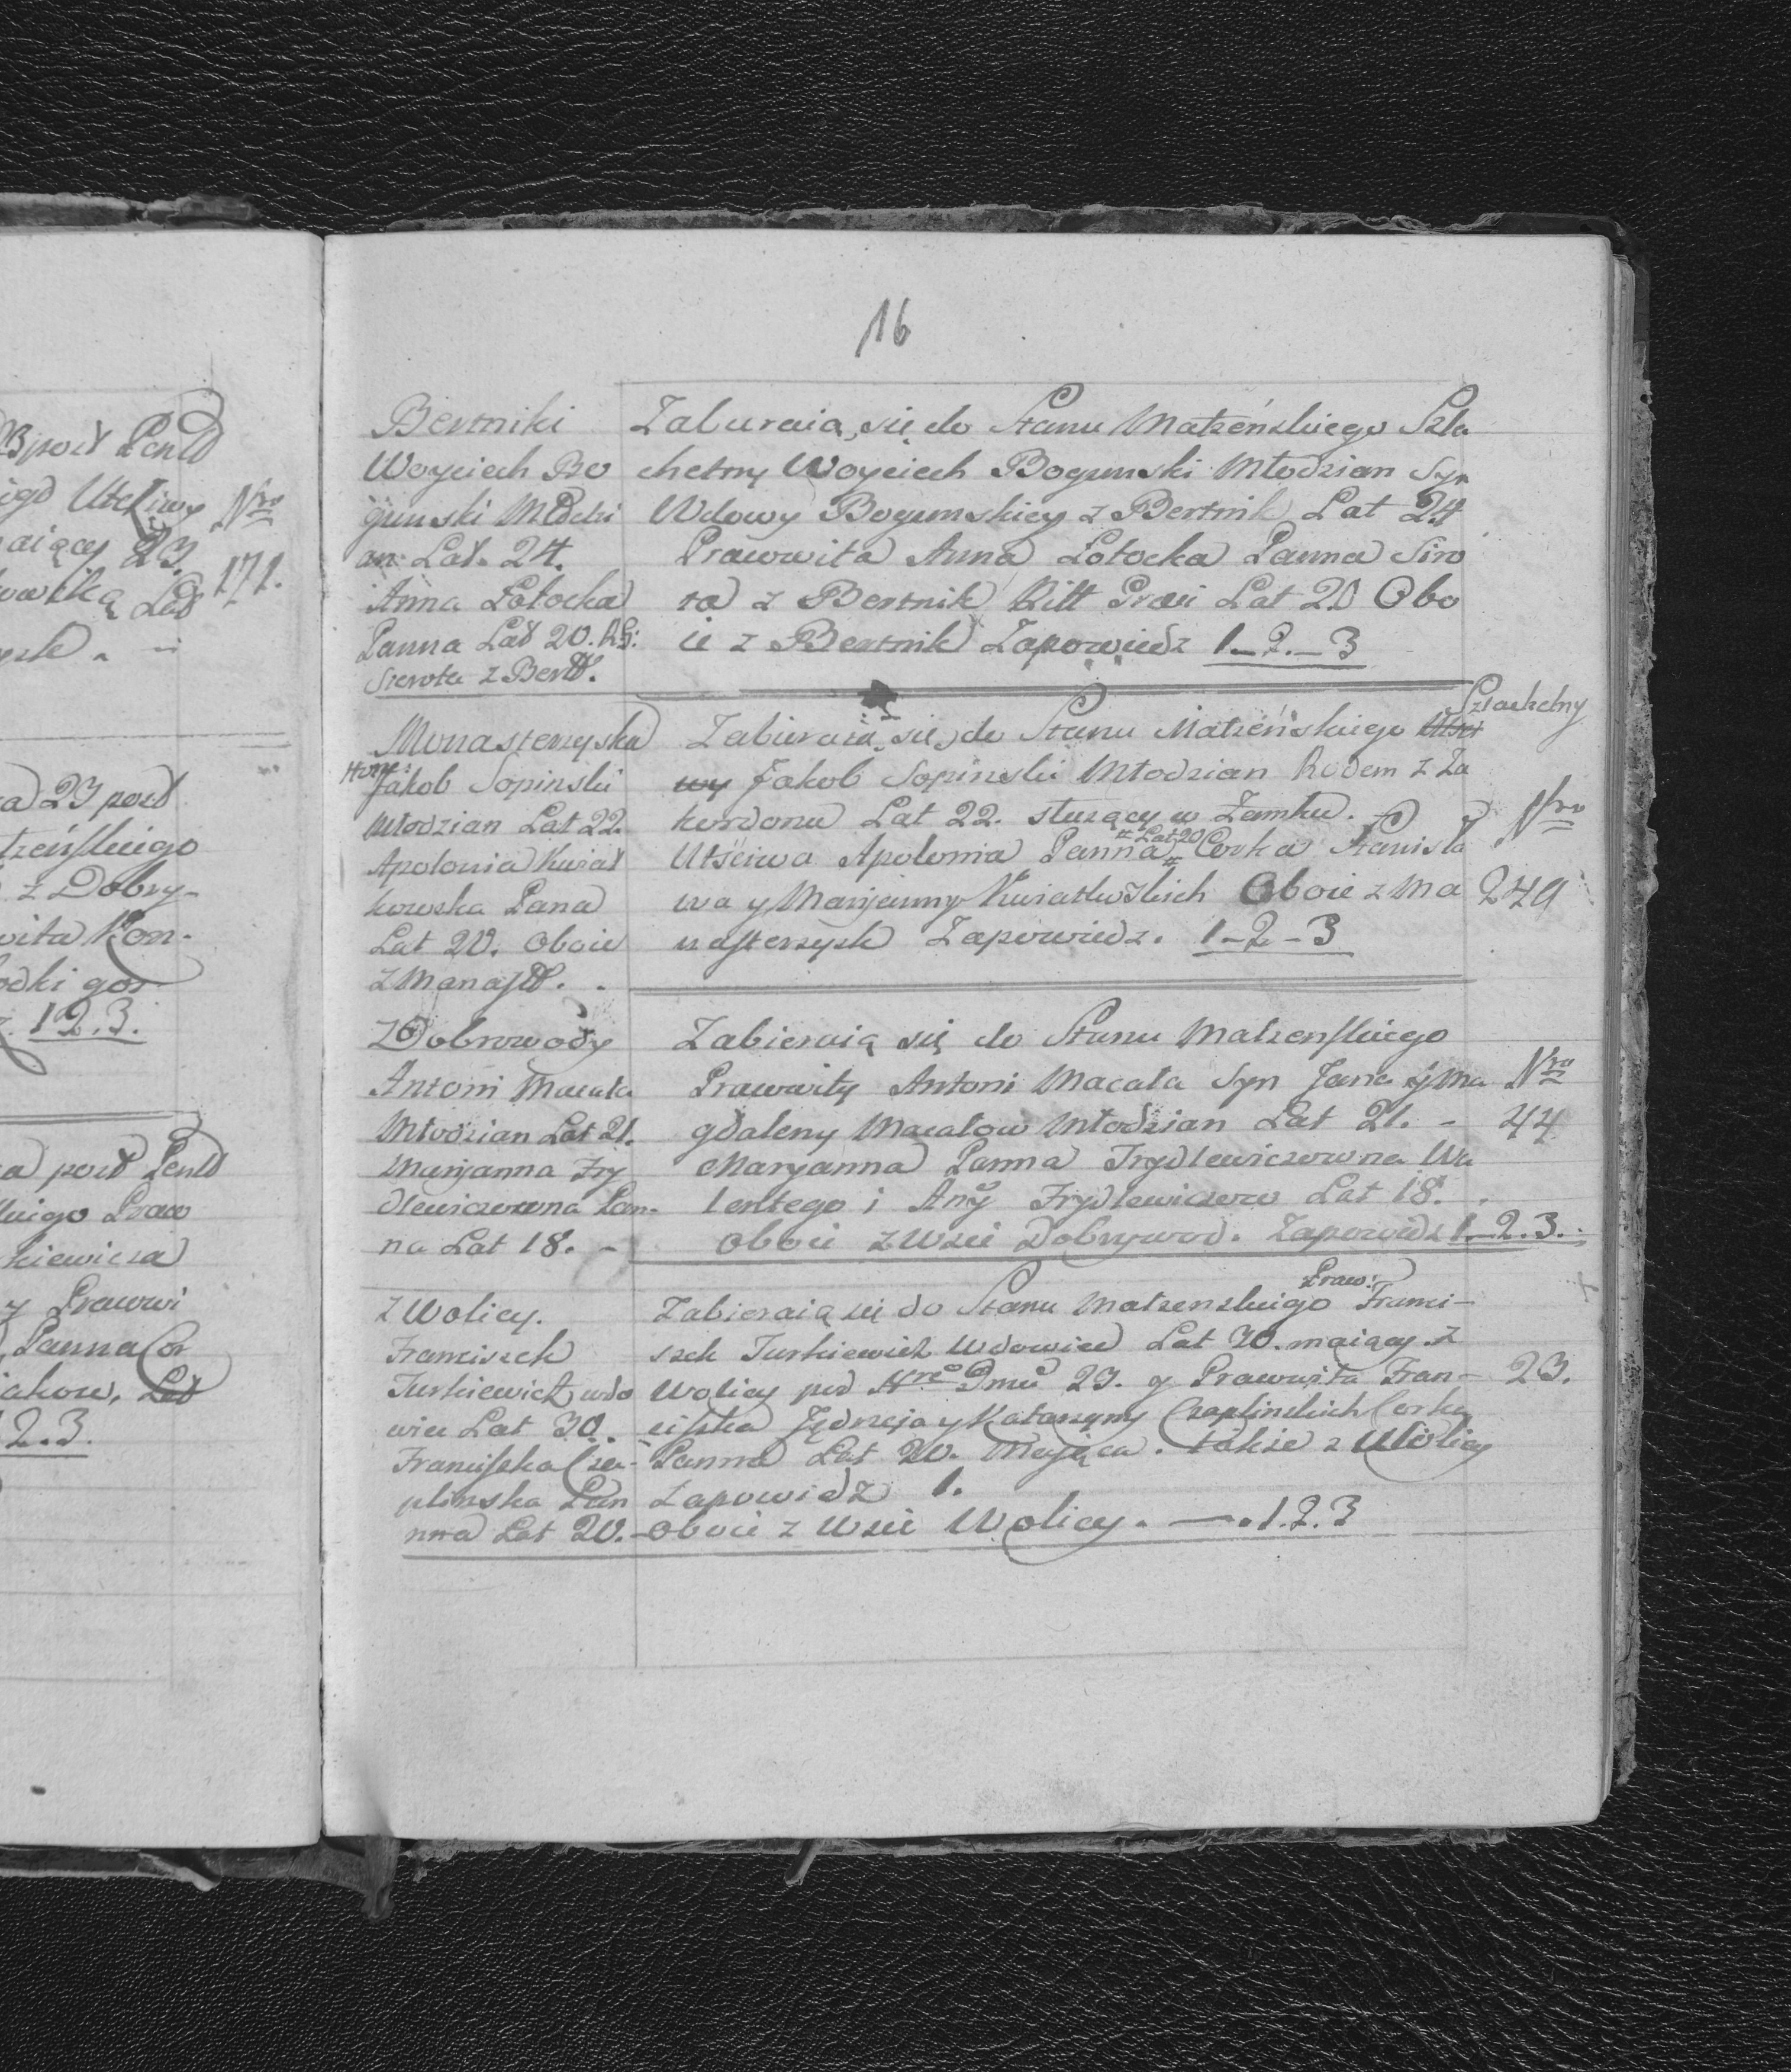 16
Bertniki
Woyciech Bo
gunski Młodzi
an Lat. 24.
Anna Łotocka
Panna Lat 20. R.G:
Sierota z Bert.
Zabieraią się do Stanu Małżeńskiego Szla
chetny Woyciech Bogunski Młodzian Syn
Wdowy Bogumskiey z Bertnik Lat 24
Prawowita Anna Łotocka Panna Siro
ta z Bertnik Ritt Graci Lat 20 Obo
ie z Bertnik Zapowiedz 1_2._3
Monasterzyska
Hon:
Jakob Sopinski
Młodzian Lat 22.
Apolonia Kwiat
kowska Pana
Lat 20. Oboie
z Monast. .
Szlachetny
Zabieraią się do Stanu Małżeńskiego Utsci
wy Jakob Sopinski Młodzian Rodem z Za
kordonu Lat 22. służący w Zamku.
Lat 20
Utściwa Apolonia Panna Corka Stanisła
wa y Marijanny Kwiatkowskich Oboie z Ma
nasterzysk Zapowiedz. 1_2_3
Nro
249
z Dobrowody
Antoni Macała
Młodzian Lat 21.
Marijanna Fry
dlewiczowna Pan-
na Lat 18. -
Zabieraią się do Stanu Małżenskiego
Prawowity Antoni Macała Syn Jana y Ma
gdaleny Macałow Młodzian Lat 21. -
Maryanna Panna Frydlewiczowna Wa
lentego i Anny Frydlewiczow Lat 18. .
oboie z Wsie Dobrywod. Zapowiedz 1_2.3.
Nro
44
z Wolicy.
Franciszek
Turkiewicz wdo
wiec Lat 30.
Franciszka Cza-
plinska Pan
nna Lat 20.
Praw:
Zabieraią sie do Stanu Małżenskiego Franci-
szek Turkiewicz Wdowiec Lat 30. maiący z
Wolicy pod Nro Dmū 23. y Prawowita Fran-
ciszka Jędrzeja y Katarzyny Czaplinskich Corka
Panna Lat 20. Mająca. także z Wolicy
Zapowiedz 1.
oboie z Wsie Wolicy. —. 1.2.3
23.
Nro
171.
1 2.3.
2.3.